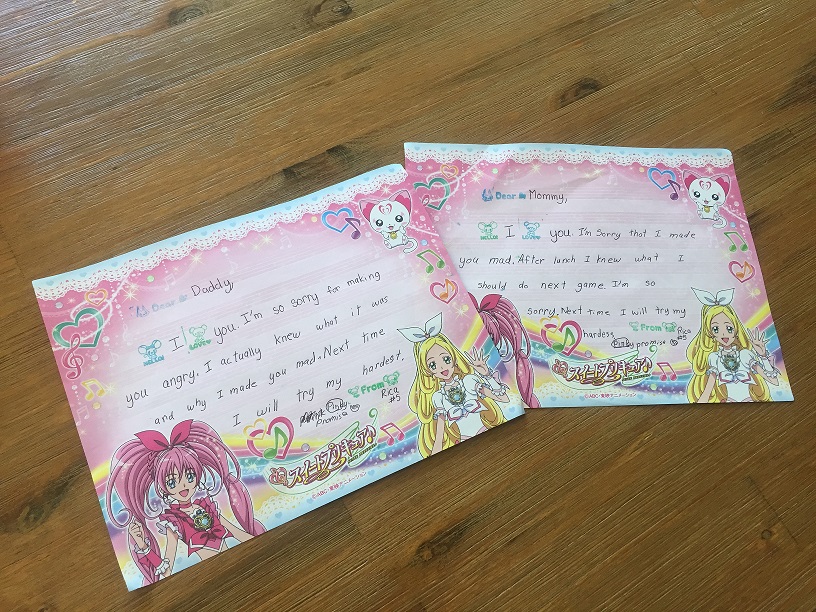 Dear Daddy,
HELLO! I LOVE you. I'm so sorry for making
you angry. I actually knew what it was
and why I made you mad. Next time
I will try my hardest.
Pinky
promise
From
Rica
#5
スイートプリキュア♪
©ABC・東映アニメーション
Dear Mommy,
HELLO! I LOVE you. I'm sorry that I made
you mad. After lunch I knew what I
should do next game. I'm so
sorry. Next time I will try my
hardess.
Pinky promise
From
Rica
#5
スイートプリキュア♪
©ABC・東映アニメーション